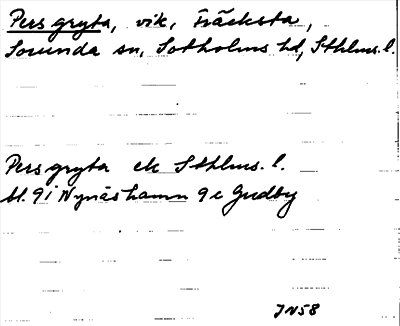 Persgryta, vik, Fräcksta,
Sorunda sn, Sotholms hd, Sthlms. l.
Persgryta ek Sthlms. l.
bl. 9i Nynäshamn 9e Gudby
JN58